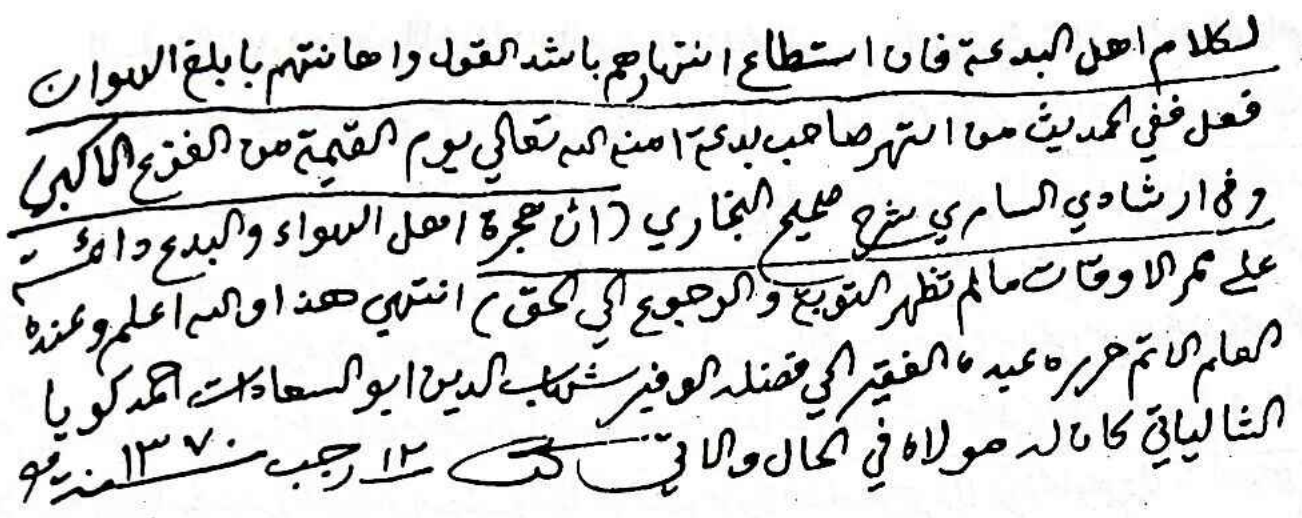 لكلام اهل البدعة فان استطاع انتهارهم باشد القول واهانتهم بابلغ الهوان
فعل ففي الحديث من انتهر صاحب بدعة امنه الله تعالي يوم القيمة من الفزع الاكبر)
وفي ارشادي الساري شرح صحيح البخاري (ان هجرة اهل الهواء والبدع دائمة
علي ممر الاوقات مالم تظهر التوبة والرجوع الي الحق) انتهي هذا والله اعلم وعنده
العلم الاتم حرره عبده الفقير الي فضله الوفير شهاب الدين ابو السعادات احمد كويا
الشالياتي كان له مولاه في الحال والاتي ١٢ رجب ١٣٧٠